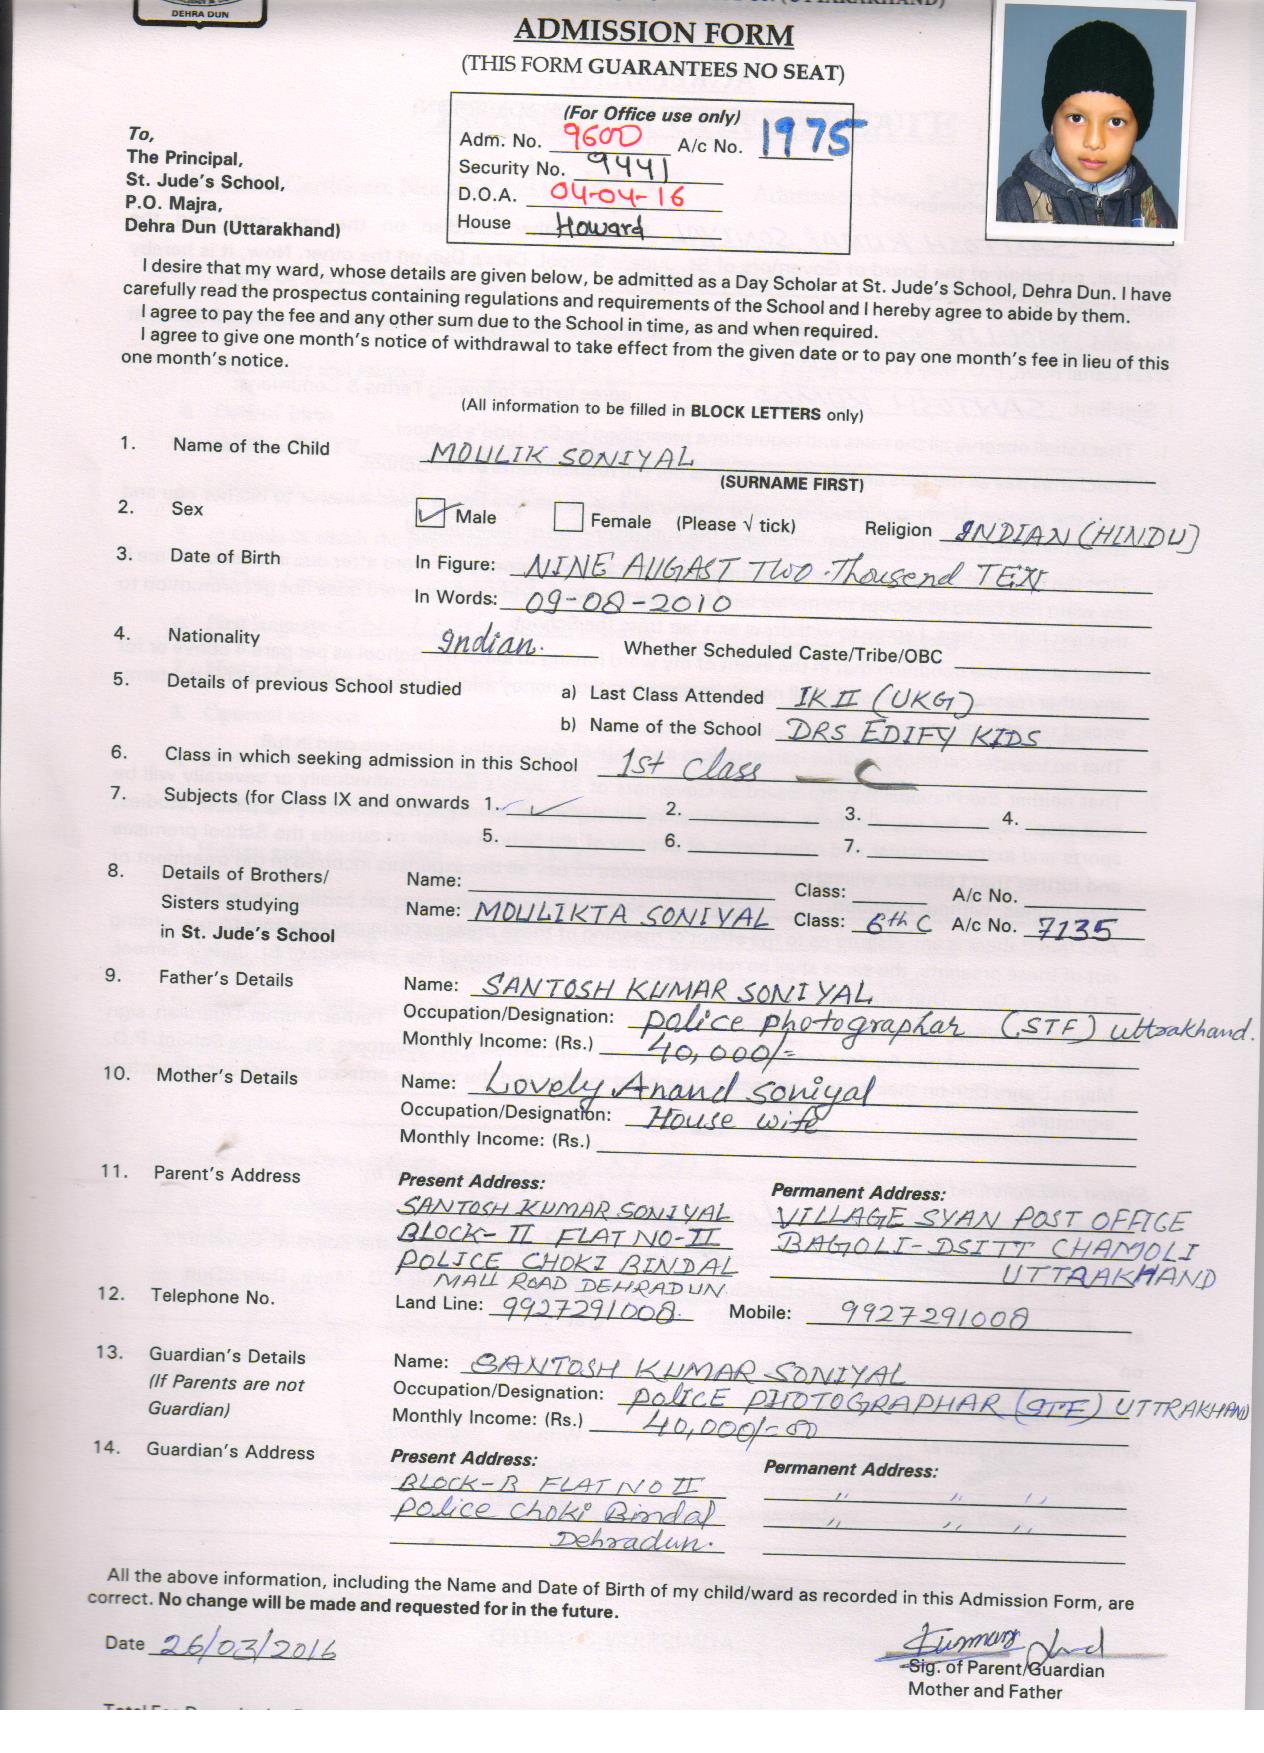 DEHRA DUN
ADMISSION FORM
(THIS FORM GUARANTEES NO SEAT)
(For Office use only)
Adm. No. 9600 A/c No. 1975
Security No. 9441
D.O.A. 04-04-16
House Howard
To,
The Principal,
St. Jude's School,
P.O. Majra,
Dehra Dun (Uttarakhand)
I desire that my ward, whose details are given below, be admitted as a Day Scholar at St. Jude's School, Dehra Dun. I have
carefully read the prospectus containing regulations and requirements of the School and I hereby agree to abide by them.
I agree to pay the fee and any other sum due to the School in time, as and when required.
I agree to give one month's notice of withdrawal to take effect from the given date or to pay one month's fee in lieu of this
one month's notice.
(All information to be filled in BLOCK LETTERS only)
1. Name of the Child MOULIK SONIYAL
(SURNAME FIRST)
2. Sex ✓ Male Female (Please √ tick) Religion INDIAN (HINDU)
3. Date of Birth In Figure: NINE AUGAST TWO Thousend TEN
In Words: 09-08-2010
4. Nationality Indian. Whether Scheduled Caste/Tribe/OBC
5. Details of previous School studied a) Last Class Attended IK II (UKG)
b) Name of the School DRS EDIFY KIDS
6. Class in which seeking admission in this School 1st Class — C
7. Subjects (for Class IX and onwards 1. ✓ 2. 3. 4.
5. 6. 7.
8. Details of Brothers/ Name: Class: A/c No.
Sisters studying Name: MOULIKTA SONIYAL Class: 6th C A/c No. 7135
in St. Jude's School
9. Father's Details Name: SANTOSH KUMAR SONIYAL
Occupation/Designation: Police photographar (STF) uttrakhand.
Monthly Income: (Rs.) 40,000/=
10. Mother's Details Name: Lovely Anand Soniyal
Occupation/Designation: House wife
Monthly Income: (Rs.)
11. Parent's Address Present Address: Permanent Address:
SANTOSH KUMAR SONIYAL VILLAGE SYAN POST OFFICE
BLOCK-II FLAT NO-II BAGOLI-DSITT CHAMOLI
POLICE CHOKI BINDAL UTTRAKHAND
MALL ROAD DEHRADUN
12. Telephone No. Land Line: 9927291008. Mobile: 9927291008
13. Guardian's Details Name: SANTOSH KUMAR SONIYAL
(If Parents are not Occupation/Designation: POLICE PHOTOGRAPHAR (STF) UTTRAKHAND
Guardian) Monthly Income: (Rs.) 40,000/=00
14. Guardian's Address Present Address: Permanent Address:
BLOCK-B FLAT NO II " " "
Police Choki Bindal " " "
Dehradun.
All the above information, including the Name and Date of Birth of my child/ward as recorded in this Admission Form, are
correct. No change will be made and requested for in the future.
Date 26/03/2016
Sig. of Parent/Guardian
Mother and Father